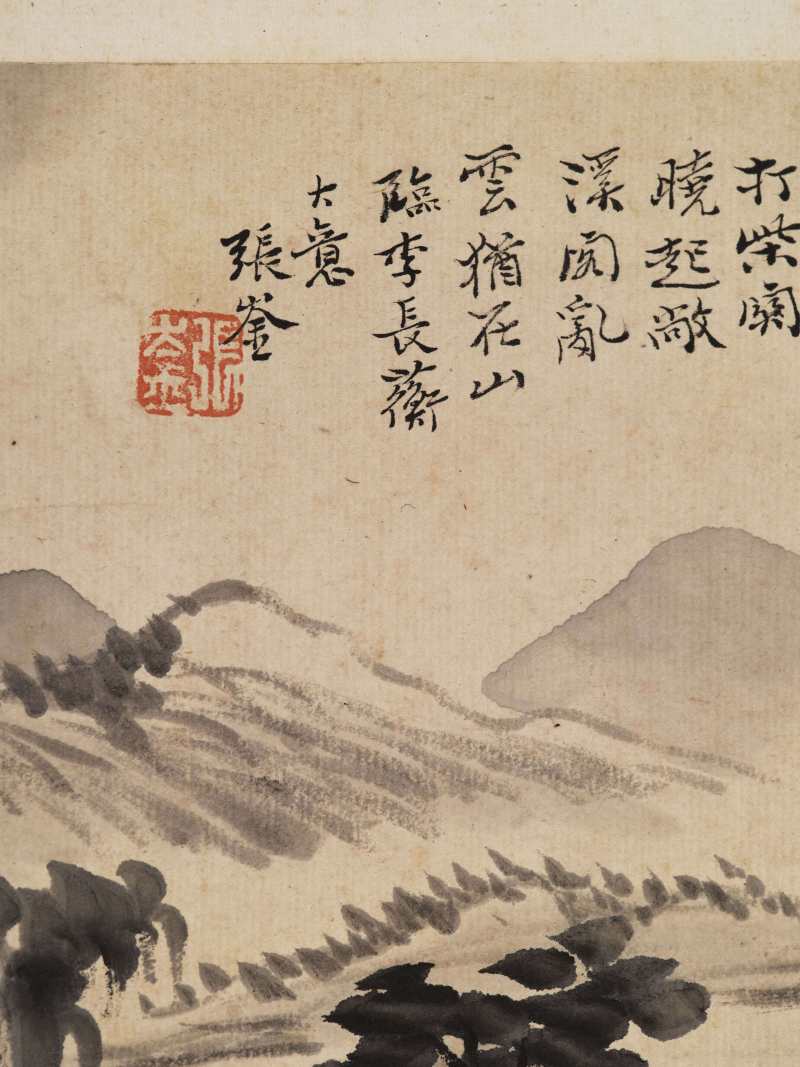 打柴關
曉起敞
溪閣亂
雲猶在山
臨李長蘅
大意
張崟